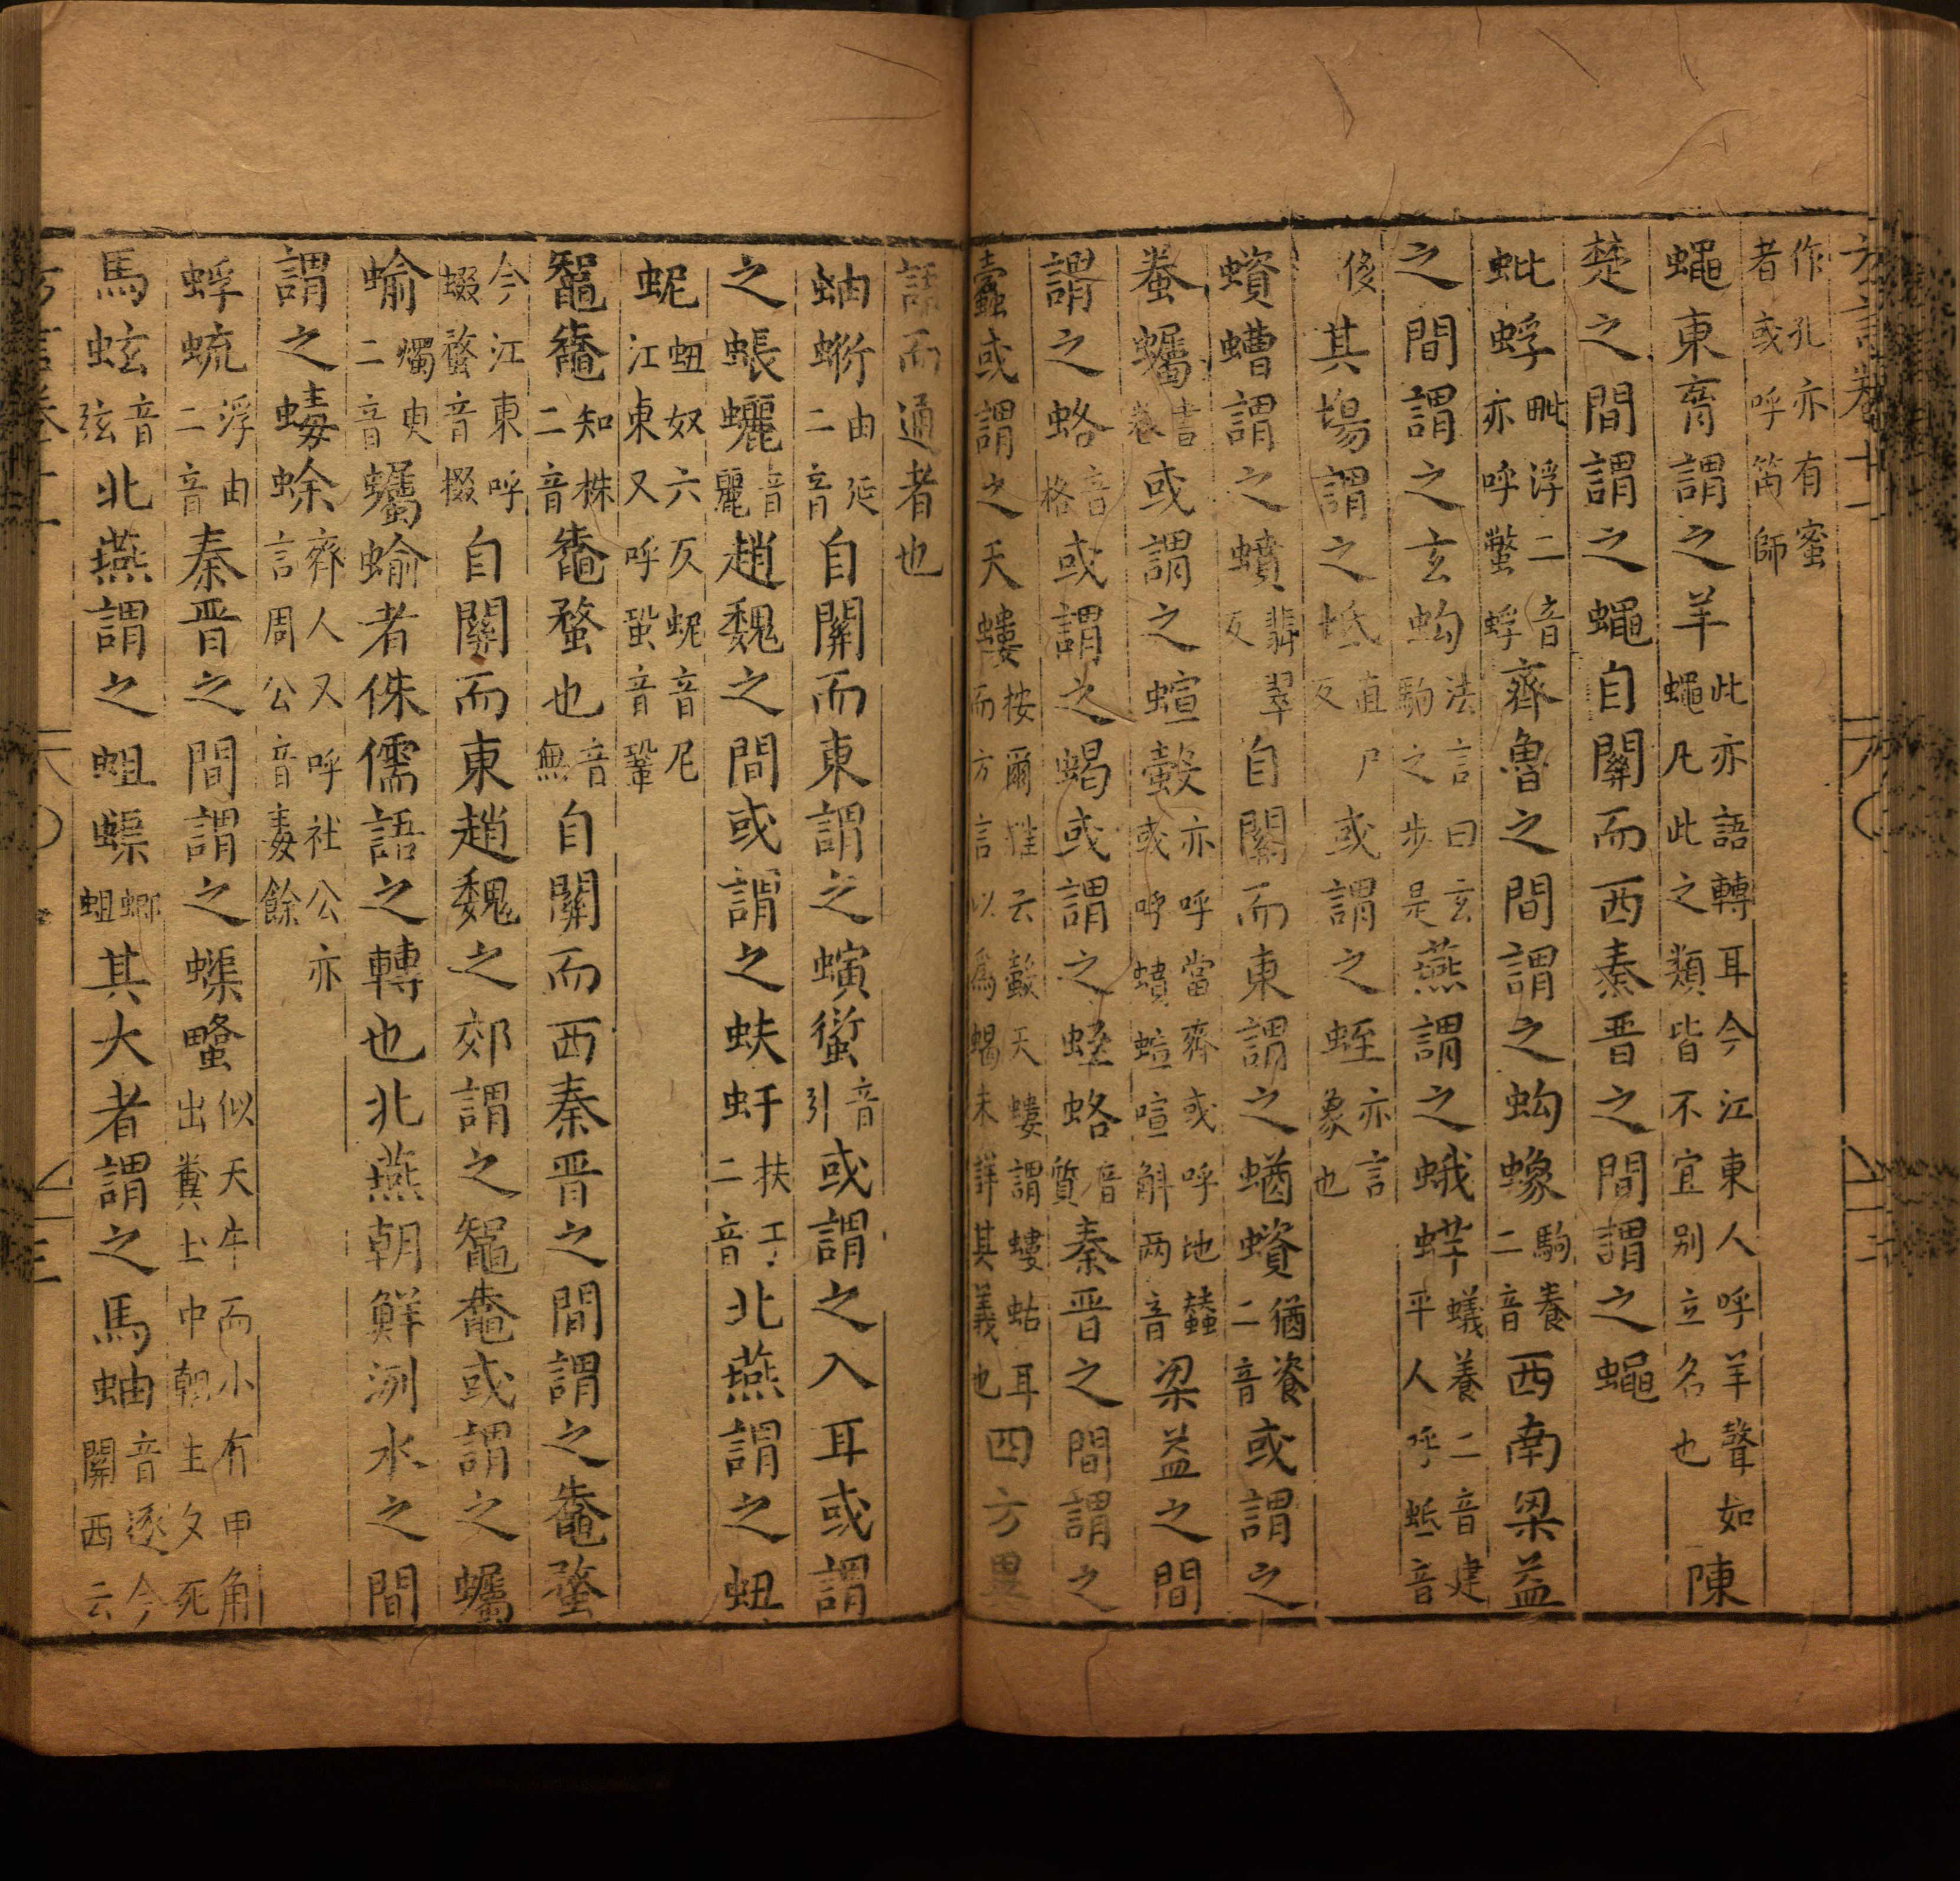 作孔亦有蜜者或呼笛師
蠅東齊謂之羊此亦語轉耳今江東人呼羊聲如蠅凡此之類皆不宜別立名也陳
楚之間謂之蠅自關而西秦晉之間謂之蠅
蚍蜉毗浮二音亦呼蟞蜉齊魯之間謂之蚼蟓駒養二音西南梁益
之間謂之玄蚼法言曰玄駒之步是燕謂之蛾蛘蟻養二音建平人呼蚳音
侈其場謂之坻直尸反或謂之蛭亦言象也
蠀螬謂之蟦翡翠反自關而東謂之蝤蠀猶資二音或謂之
蛬蠾書卷或謂之蝖螜亦呼當齊或呼地蠶或呼蟦蝖喧斛两音梁益之間
謂之蛒音格或謂之蝎或謂之蛭蛒音質秦晉之間謂之
蠹或謂之天螻按爾雅云螜天螻謂螻蛄耳而方言以爲蝎未詳其義也四方異
語而通者也
蚰蜒由延二音自關而東謂之螾䖤音引或謂之入耳或謂
之蜄蠷音麗趙魏之間或謂之蚨虶扶于二音北燕謂之蛆
蚭蛆奴六反蚭音尼江東又呼蛩音鞏
鼅鼄知株二音鼄蝥也音無自關而西秦晉之間謂之鼄蝥
今江東呼蝃蝥音掇自關而東趙魏之郊謂之鼅鼄或謂之蠾
蝓燭臾二音蠾蝓者侏儒語之轉也北燕朝鮮洌水之間
謂之蝳蜍齊人又呼社公亦言周公音毒餘
蜉蝣浮由二音秦晉之間謂之蟝䗁似天牛而小有甲角出糞土中朝生夕死
馬蚿音弦北燕謂之蛆蟝蝍蛆其大者謂之馬蚰音逐今關西云